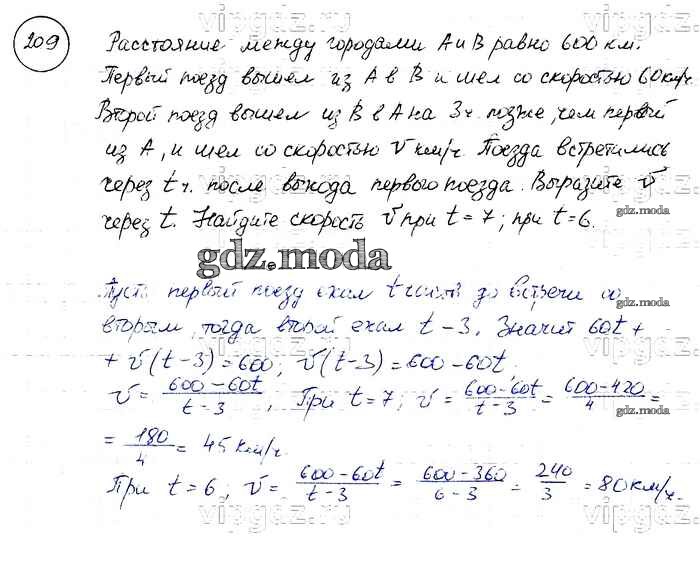 209
Расстояние между городами А и В равно 600 км.
Первый поезд вышел из А в В и шел со скоростью 60км/ч.
Второй поезд вышел из В в А на 3ч. позже, чем первый
из А, и шел со скоростью v км/ч. Поезда встретились
через t ч. после выхода первого поезда. Выразите v
через t. Найдите скорость v при t = 7; при t = 6.
Пусть первый поезд ехал t часов до встречи со
вторым, тогда второй ехал t - 3. Значит 60t +
+ v(t-3) = 600; v(t-3) = 600 - 60t,
v = (600 - 60t)/(t - 3), При t = 7; v = (600-60t)/(t-3) = (600-420)/4 =
= 180/4 = 45 км/ч.
При t = 6; v = (600-60t)/(t-3) = (600-360)/(6-3) = 240/3 = 80 км/ч.
gdz.moda
gdz.moda
gdz.moda
gdz.moda
gdz.moda
gdz.moda
vipgdz
vipgdz